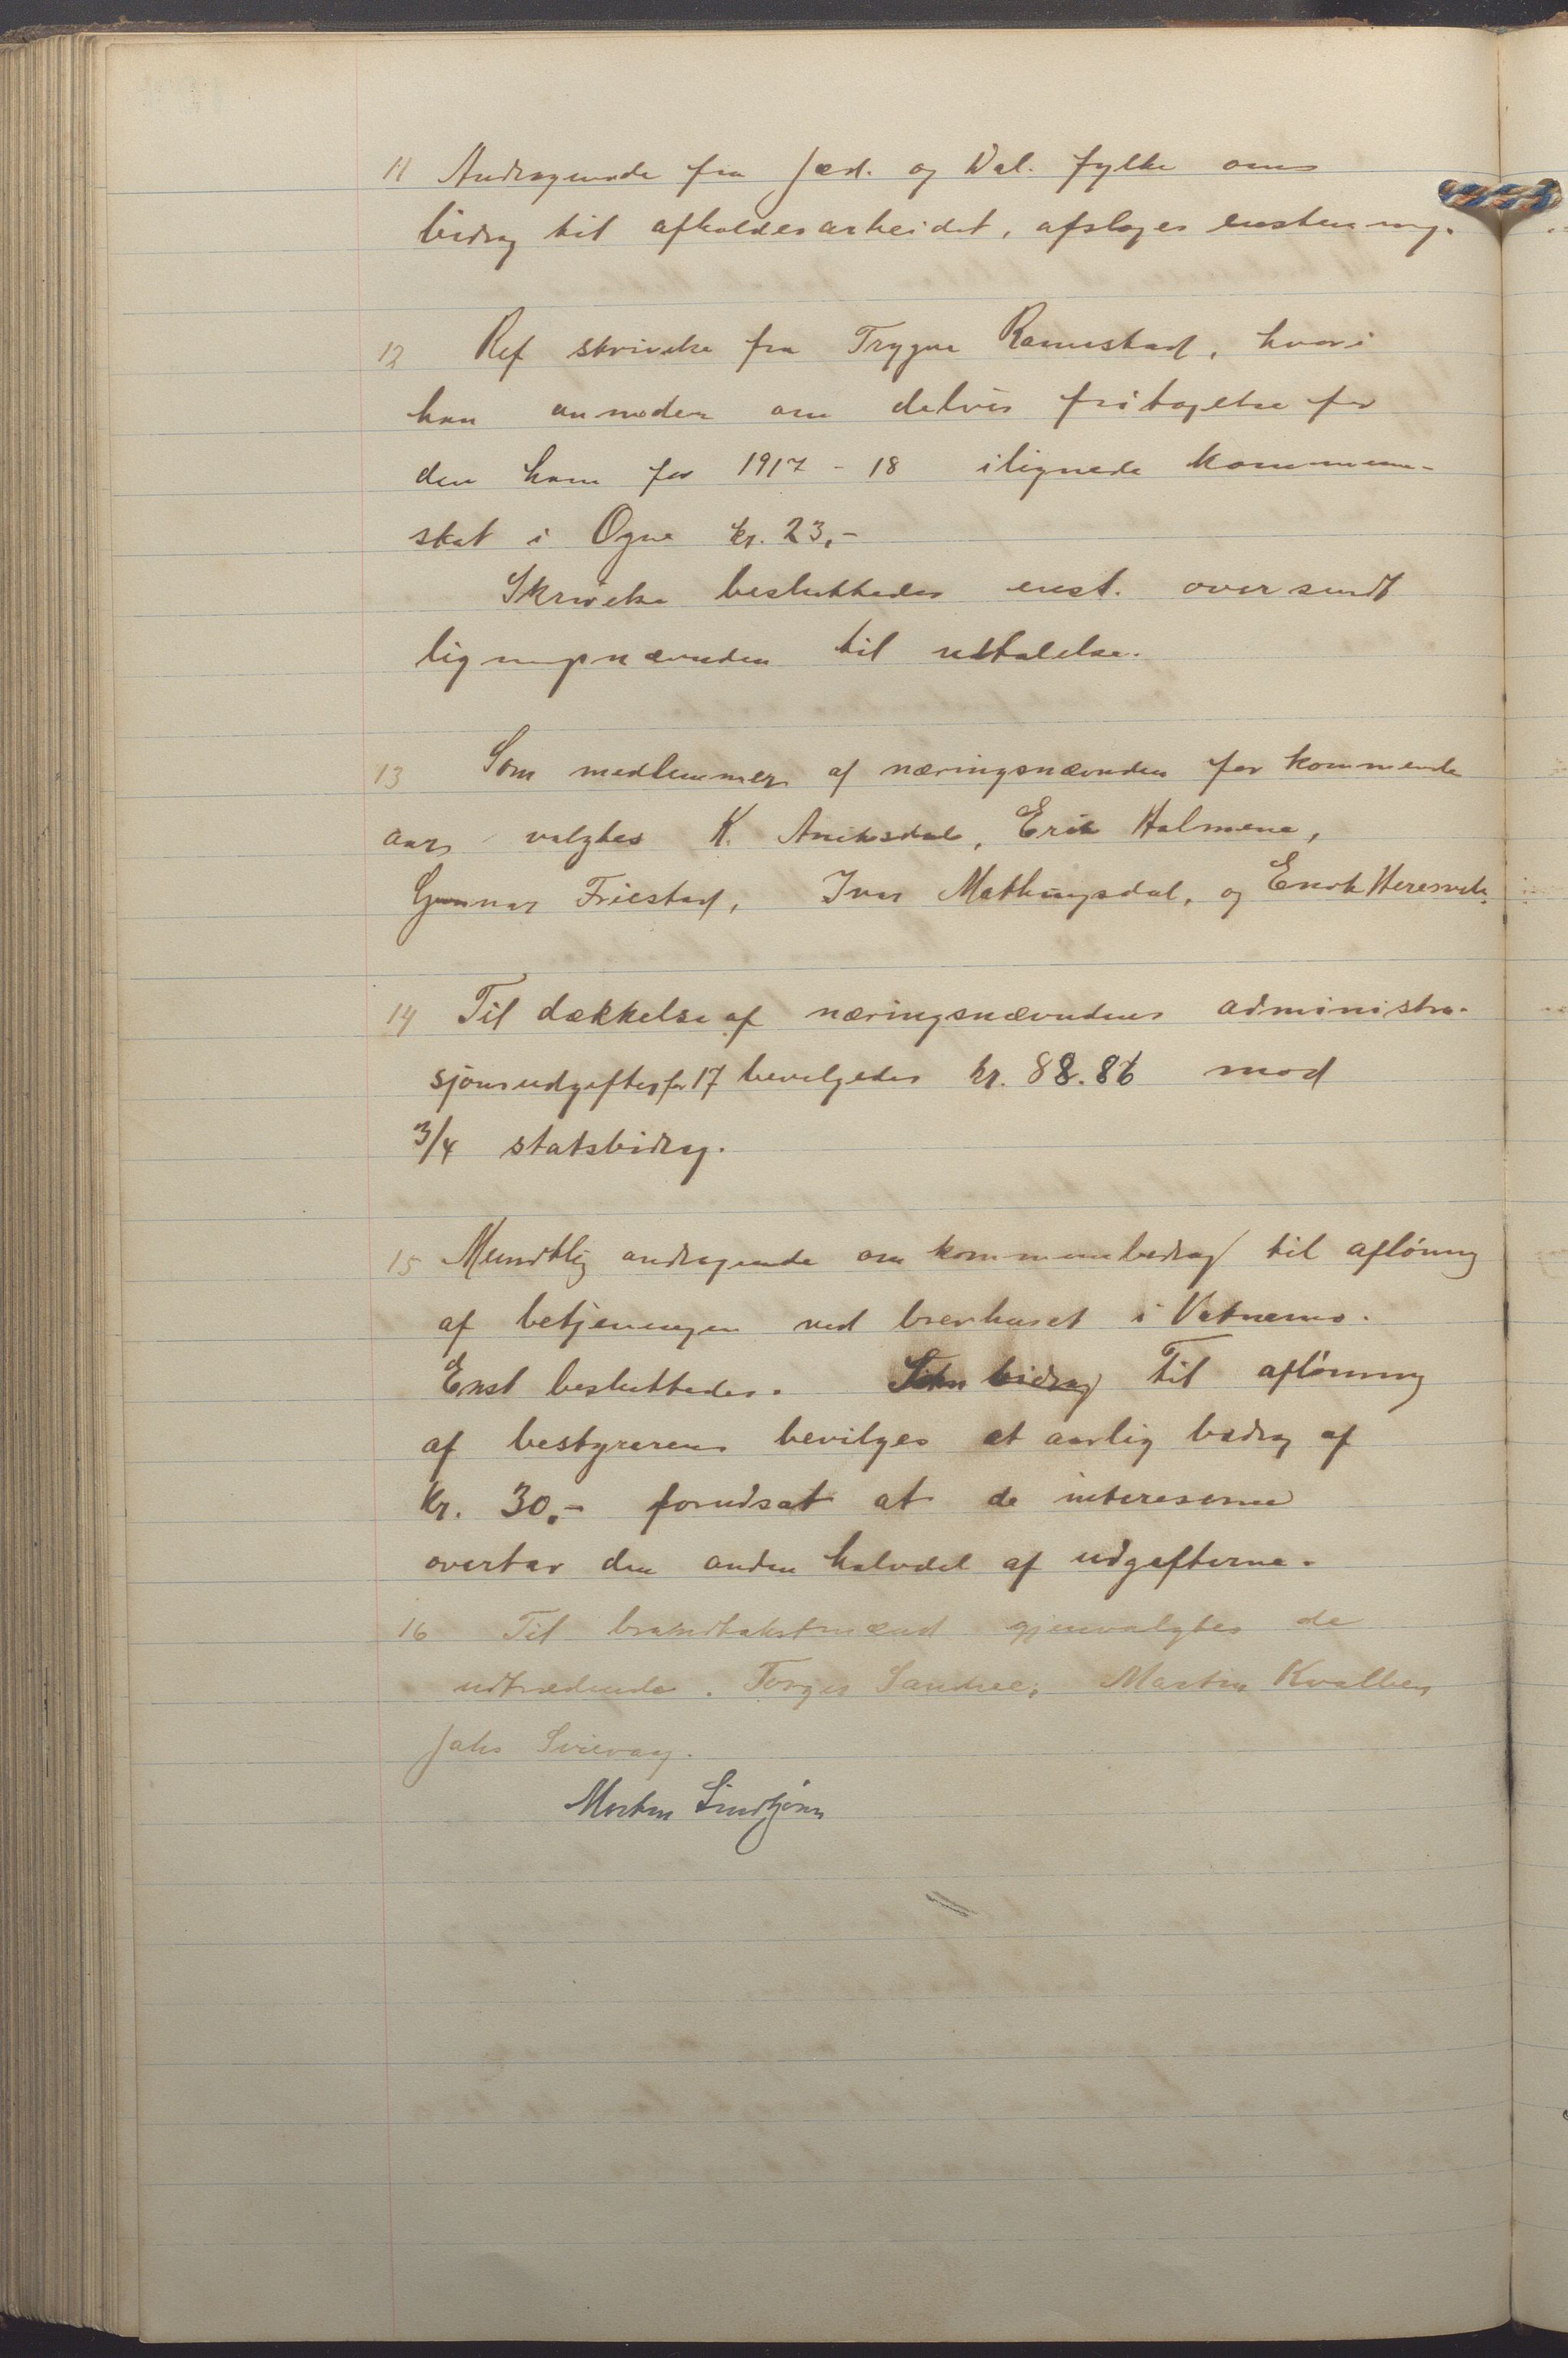 11 Andragende fra Jæd. og Dal. fylke om
bidrag til afholdsarbeidet, afsloges enstemmig.
12 Ref skrivelse fra Trygve Ramstad, hvori
han anmoder om delvis fritagelse for
den ham for 1917 - 18 ilignede kommune-
skat i Ogna kr. 23,-
Skrivelse besluttedes enst. oversendt
ligningsnævnden til uttalelse.
13 Som medlemmer af næringsnævnden for kommende
aar valgtes K. Aniksdal, Erik Holmene,
Gunnar Friestad, Ivar Mathingsdal, og Enok Heresvela.
14 Til dækkelse af næringsnævndens administra-
sjonsudgifter for 17 bevilgedes kr. 88.86 mod
3/4 statsbidrag.
15 Mundtlig andragende om kommunebidrag til aflønning
af betjeningen ved brevhuset i Vatnemo.
Enst besluttedes. Som bidrag Til aflønning
af bestyreren bevilges et aarlig bidrag af
kr. 30.- forudsat at de interesserne
overtar den anden halvdel af udgifterne.
16 Til brandtakstmænd gjenvalgtes de
udtrædende. Torger Sandve, Martin Kvalbein
Jakob Sirevaag.
Morten Lindtjørn